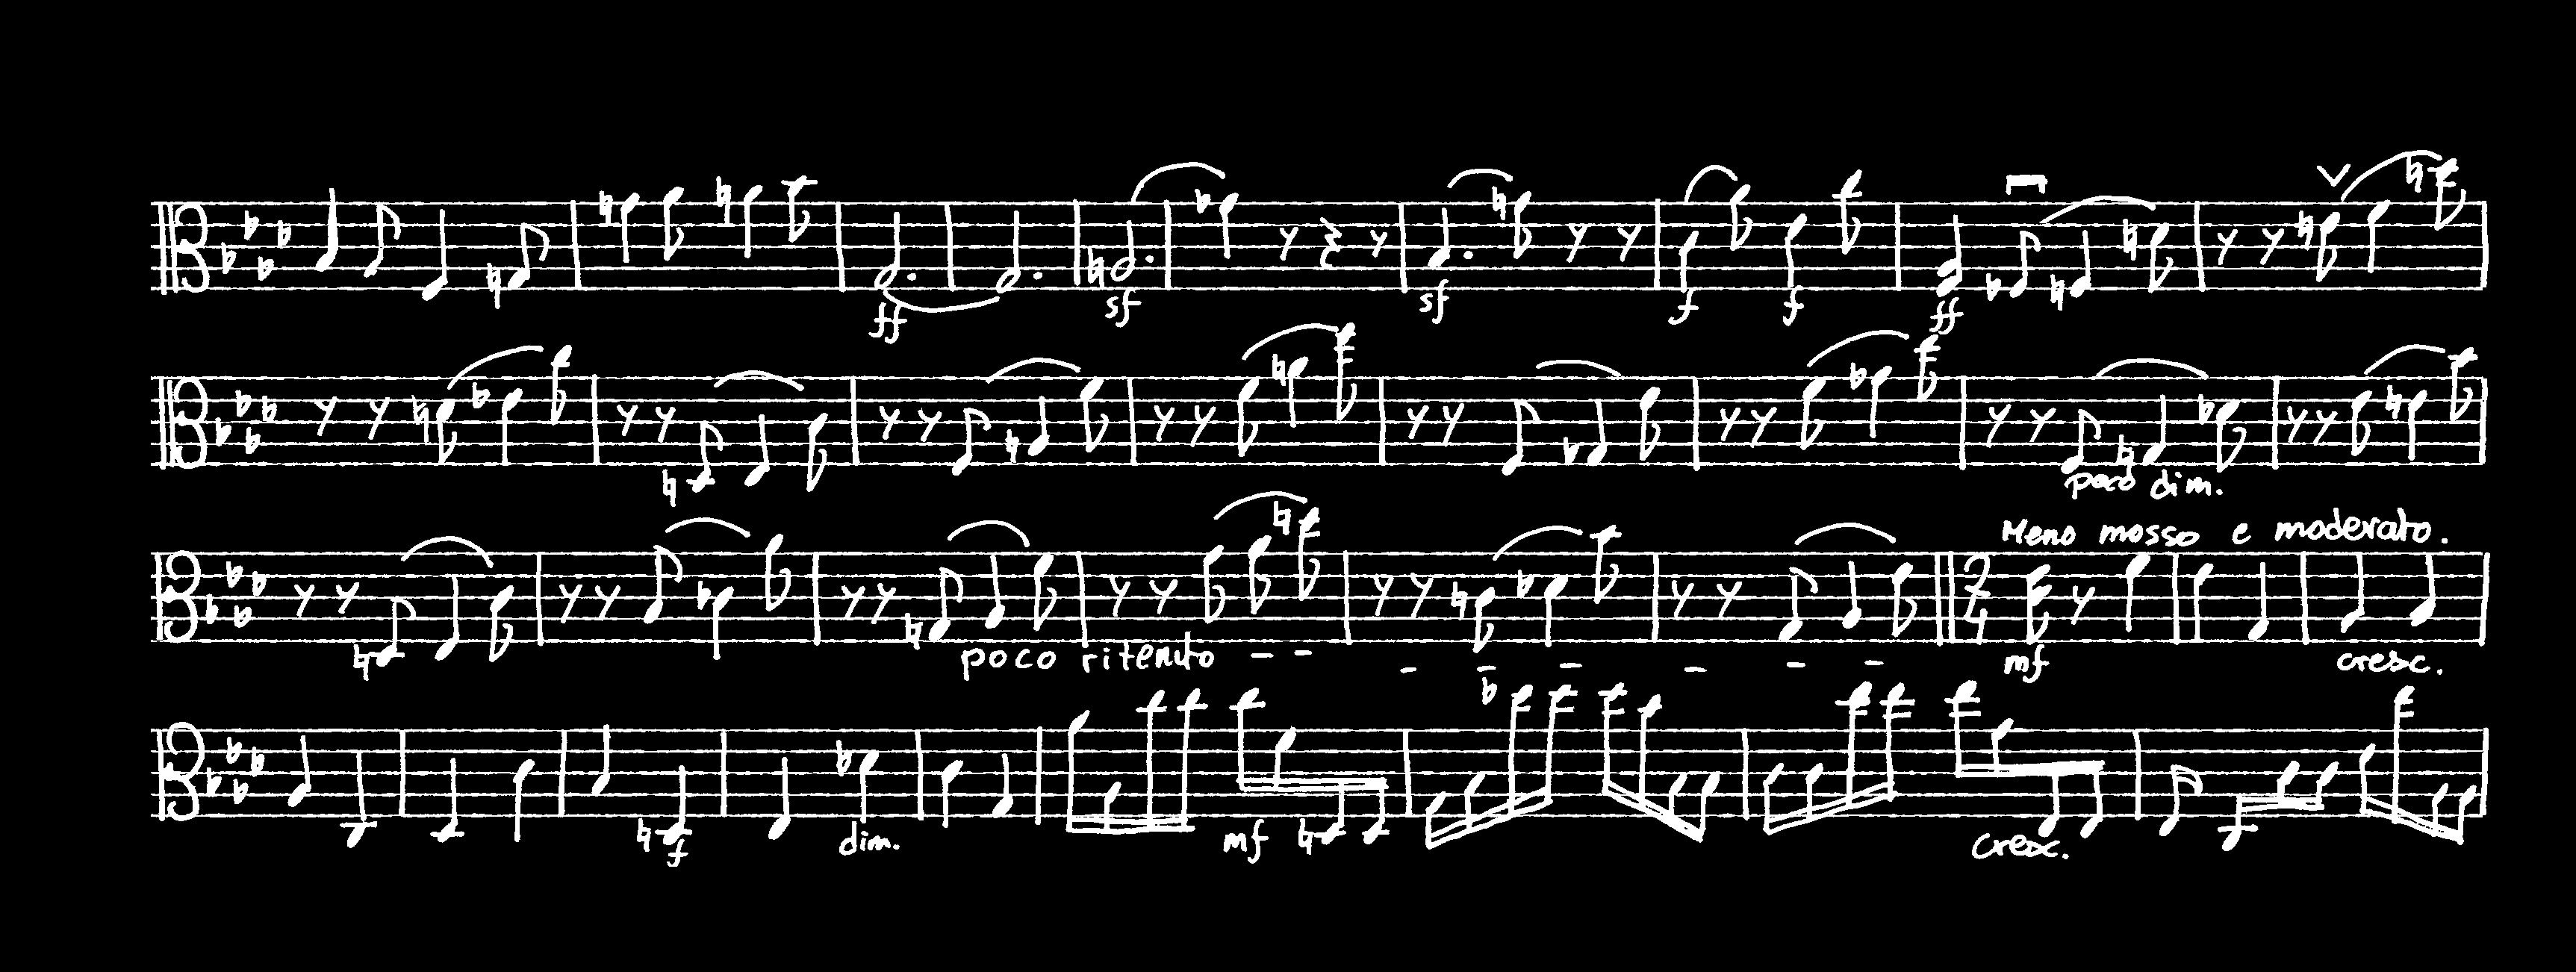 ff sf sf f f ff
poco dim.
Meno mosso e moderato.
2/4
poco ritenuto - - - - - - - - mf cresc.
f dim. mf cresc.